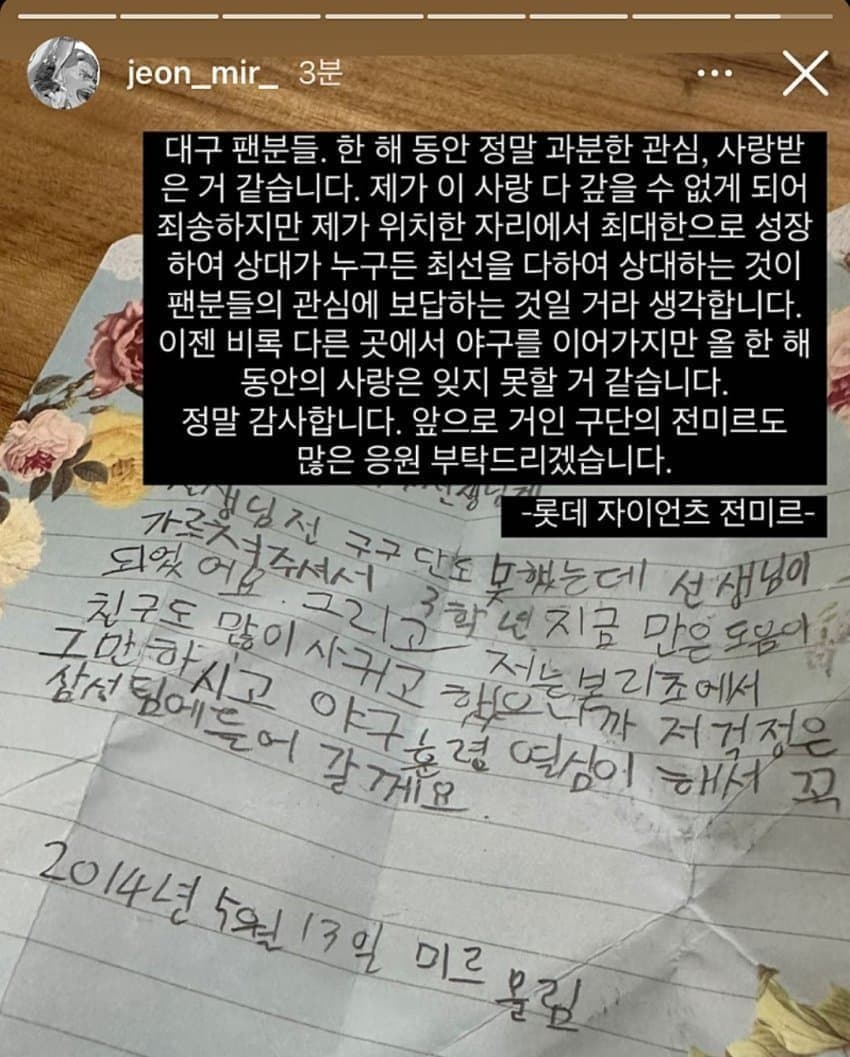 jeon_mir_ 3분
대구 팬분들. 한 해 동안 정말 과분한 관심, 사랑받
은 거 같습니다. 제가 이 사랑 다 갚을 수 없게 되어
죄송하지만 제가 위치한 자리에서 최대한으로 성장
하여 상대가 누구든 최선을 다하여 상대하는 것이
팬분들의 관심에 보답하는 것일 거라 생각합니다.
이젠 비록 다른 곳에서 야구를 이어가지만 올 한 해
동안의 사랑은 잊지 못할 거 같습니다.
정말 감사합니다. 앞으로 거인 구단의 전미르도
많은 응원 부탁드리겠습니다.
-롯데 자이언츠 전미르-
선생님전 구구단도 못했는데 선생님이
가르쳐주셔서 3학년 지금 만은 도움이
되었어요. 그리고 저는 본리초에서
친구도 많이 사귀고 했으니까 저 걱정은
그만하시고 야구 훈령 열심이 해서 꼭
삼성팀에 들어 갈게요.
2014년 5월 13일 미르 올림